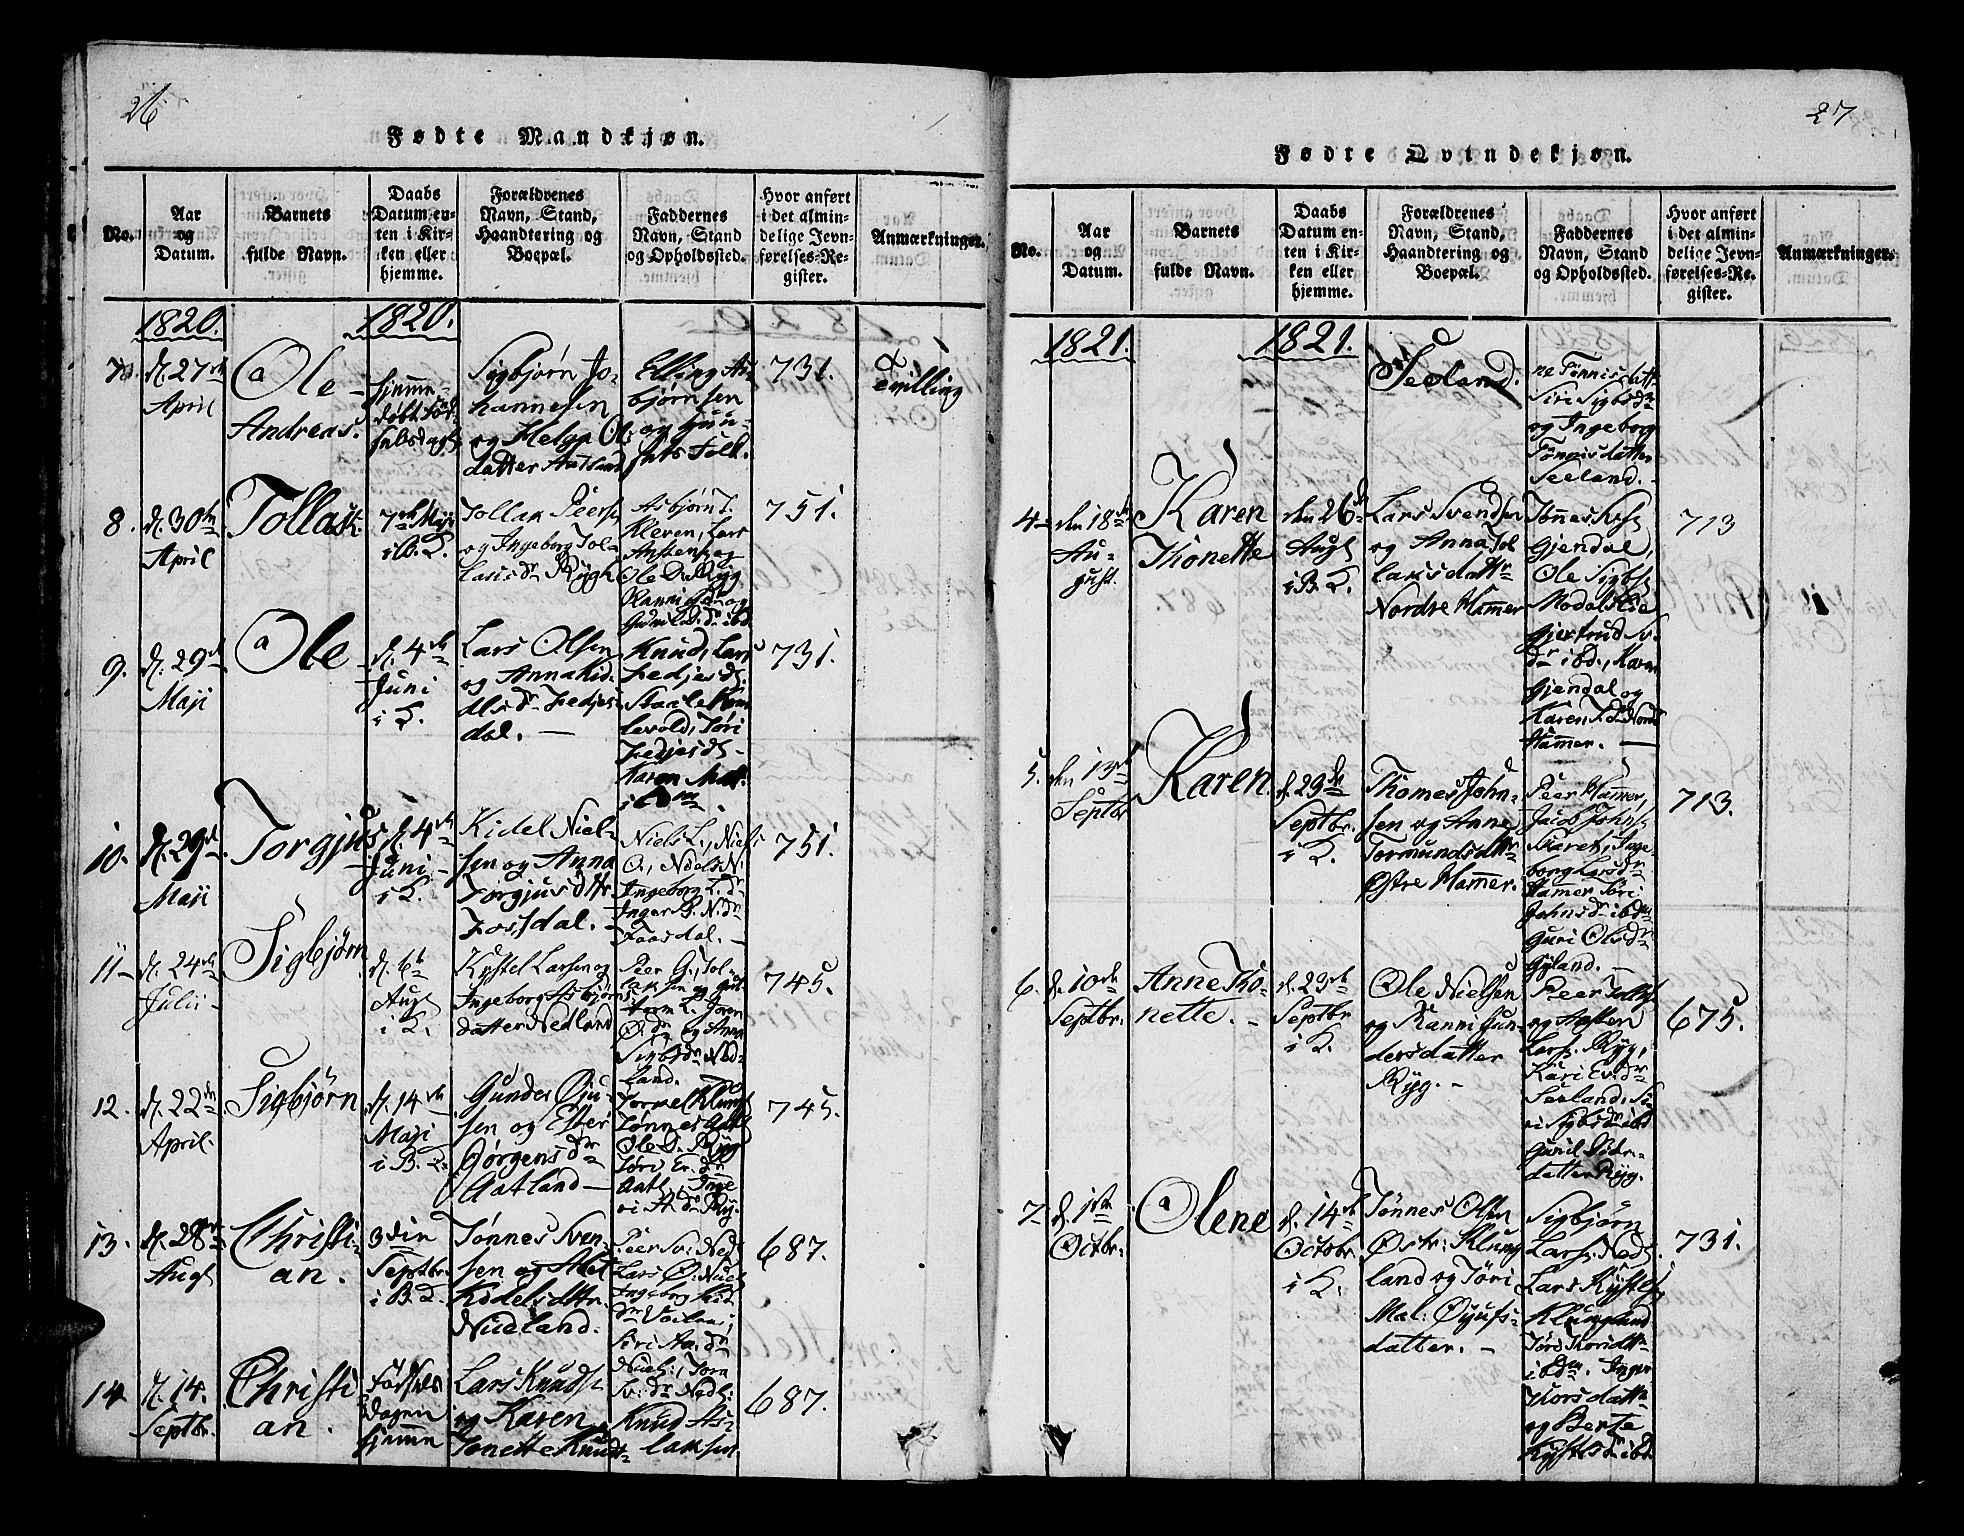 26
Fødte Mandkjøn.
No.
Aar
og
Datum.
Barnets
fulde Navn.
Daabs
Datum en-
ten i Kir-
ken eller
hjemme.
Forældrenes
Navn, Stand,
Haandtering og
Boepæl.
Faddernes
Navn, Stand
og Opholdssted.
Hvor anført
i det almin-
delige Jevn-
førelses-Re-
gister.
Anmærkninger.
1820.
1820.
7
d. 27de
April
Ole
Andreas.
hjemme-
døbt
Sigbjørn Jo-
hannesen
og Helga Ols
datter
Elling As-
bjørnsen
og
731.
Tvilling
8.
d. 30te
April
Tollak
7de Maji
i B. K.
Tollak Peersen
og Ingeborg Tol-
laksdr Rygh
Asbjørn T.
Kleven, Lars
Ole D. Ryg
Ranni
751.
9.
d. 29d
Maji
Ole
d. 4de
Juni
i K.
Lars Olsen
og Anna Kid-
elsdr Fedjes-
dal.
Knud, Lars
Fedjesdl.
Fedjesdl
Karen
ibdm.
731.
10.
d. 29d
Maji
Torgjus
d. 4de
Juni
i K.
Kidel Niel-
sen og Anna
Torgjusdttr.
Fossdal.
Niels L., Niels
O., Niels N.
Ingeborg L.dr
Inger P. N.dr
Faasdal.
751.
11
d. 24de
Julii
Sigbjørn
d. 6t
Augt
i K.
Kystel Larsen og
Ingeborg Asbjørns
datter Nedland
Peer G., Tol-
og Anna
Sigbsdr Ned-
land.
745.
12.
d. 22de
April.
Sigbjørn
d. 14de
Maji
i B. K.
Gunder Øju-
sen og Ester
Jørgensdr
Aatland
Tønnes
Ole D. Ryg
745.
13.
d. 28de
Augt
Christi-
an.
3die
Septbr.
i B. K.
Tønnes Sven-
sen og Alet
Kidelsdttr.
Nueland.
Peer Sv: Nedl
Lars O: Nuel
Ingeborg Kid.
Siri
687.
14
d. 14.
Septbr.
Christi
an.
Fødsels
dagen
hjemme
Lars Knuds
og Karen
Tonette Knuds-
Nuel:
Sv: dr Nedl:
Knud As-
laksen.
687.
27
Fødte Qvindekjøn.
No.
Aar
og
Datum.
Barnets
fulde Navn.
Daabs
Datum en-
ten i Kir-
ken eller
hjemme.
Forældrenes
Navn, Stand,
Haandtering og
Boepæl.
Faddernes
Navn, Stand
og Opholdssted.
Hvor anført
i det almin-
delige Jevn-
førelses-Re-
gister.
Anmærkninger.
1821.
1821.
Seeland.
ne Tønnisdatt
Siri Sigbsdr
og Ingeborg
Tønnisdatter
Seeland.
4
den 18de
Au-
gust.
Karen
Thonette
den 26de
Augt
i B. K.
Lars Svendsen
og Anna Tol
laksdattr
Nordre Hamer
Gjendal,
Ole Sigbs
Modalslie
Gjertrud Sv.
dr ibd., Karen
Gjendal og
Karen
Hamer.
713
5.
den 13de
Septbr
Karen.
d. 29de
Septbr.
i K.
Thomes John-
sen og Anne
Tormundsdttr
Østre Hamer.
Peer Hamer,
Jacob Johns.
Skaret, Inge-
borg Larsdr
Hamer Siri
Johnsdr ibdm
Guri Olsdr
Gyland.
713.
6.
d. 10de
Septbr.
Anne Tho-
nette.
d. 23de
Septbr
i K.
Ole Nielsen
og Ranni Gun-
dersdatter
Ryg.
Peer
og
Lars. Ryg,
Kari Ev.dr
Seeland, Si-
ri Sigbsdr ibd
Gunil
datter Ryg.
675.
7.
d. 1ste
Octbr.
Olene
d. 14de
Octobr.
i K.
Tønnes Olsen
Østr: Klung
land og Tøri
Mal: Øyufs-
datter.
Sigbjørn
Lars. Nedl
Lars Kystels.
Klungland
Tøri
ibdm. Inger
Thorsdattr
og Berte
Kystelsdr ibd
731.